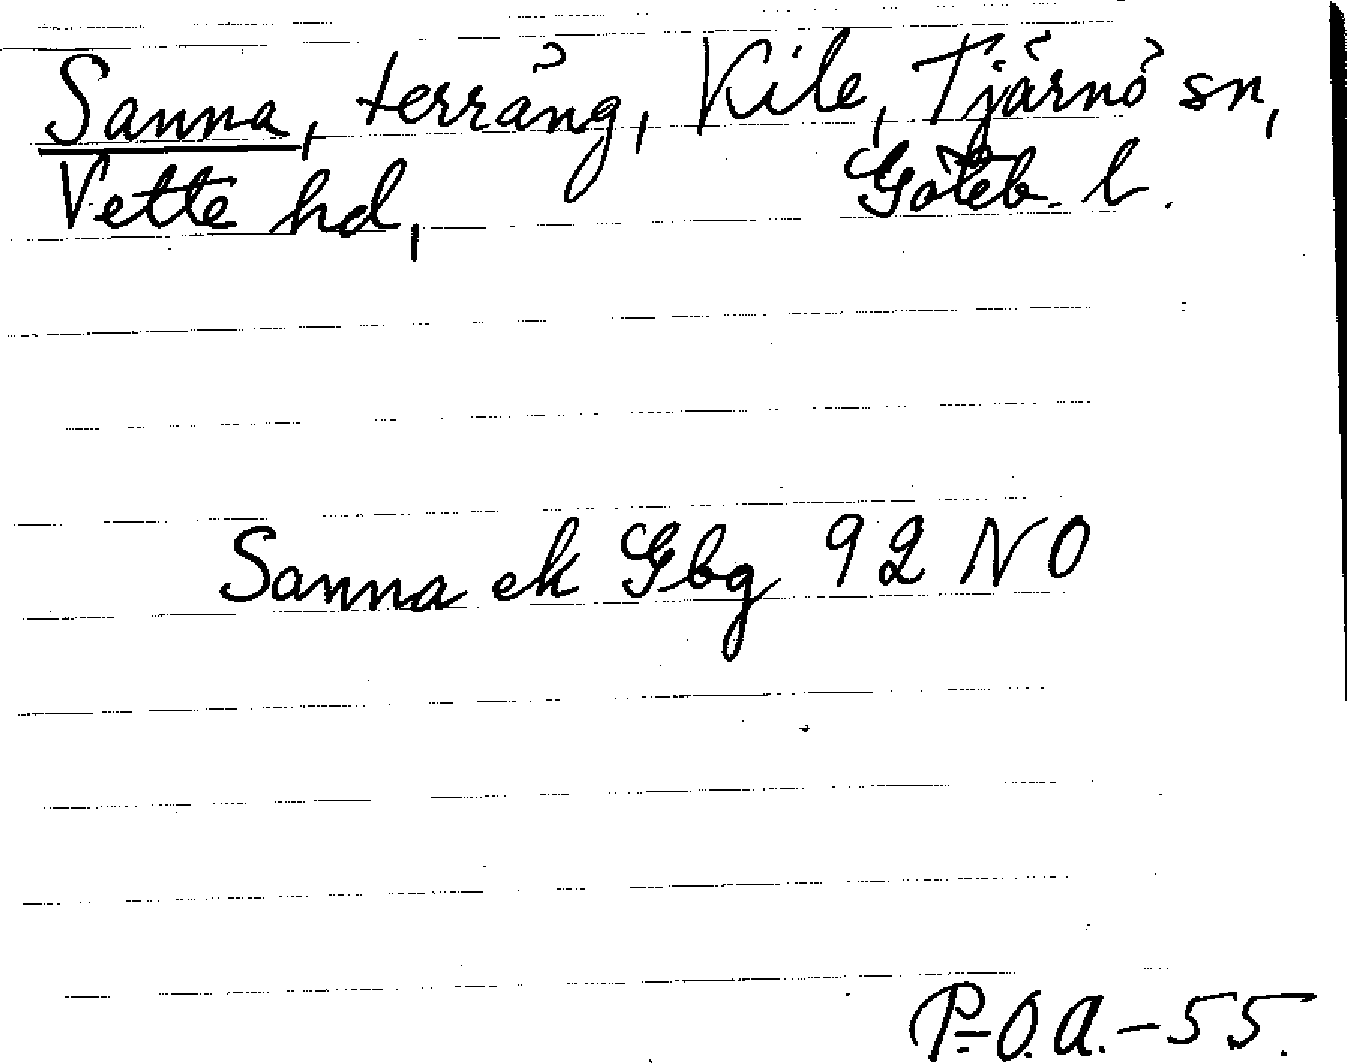 Sanna, terräng, Kile, Tjärnö sn,
Vette hd, Göteb. l.
Sanna ek Gbg 92 NO
P-O.A.-55.